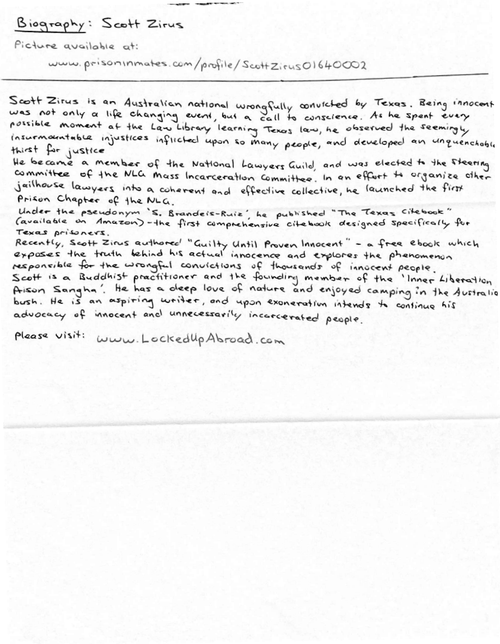 Biography: Scott Zirus
Picture available at:
www.prisoninmates.com/profile/ScottZirus01640002
Scott Zirus is an Australian national wrongfully convicted by Texas. Being innocent
was not only a life changing event, but a call to conscience. As he spent every
possible moment at the Law Library learning Texas law, he observed the seemingly
insurmountable injustices inflicted upon so many people, and developed an unquenchable
thirst for justice
He became a member of the National Lawyers Guild, and was elected to the steering
committee of the NLG Mass Incarceration Committee. In an effort to organize other
jailhouse lawyers into a coherent and effective collective, he launched the first
Prison Chapter of the NLG.
Under the pseudonym 'S. Brandeis-Ruiz', he published "The Texas Citebook"
(available on Amazon) - the first comprehensive citebook designed specifically for
Texas prisoners.
Recently, Scott Zirus authored "Guilty Until Proven Innocent" - a free ebook which
exposes the truth behind his actual innocence and explores the phenomenon
responsible for the wrongful convictions of thousands of innocent people.
Scott is a Buddhist practitioner and the founding member of the 'Inner Liberation
Prison Sangha'. He has a deep love of nature and enjoyed camping in the Australia
bush. He is an aspiring writer, and upon exoneration intends to continue his
advocacy of innocent and unnecessarily incarcerated people.
Please visit: www.LockedUpAbroad.com